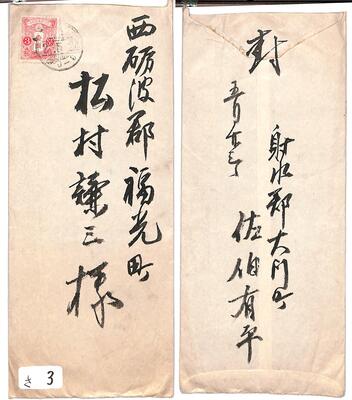 西砺波郡福光町
松村謙三様
さ 3
封
五月
射水郡大門町
佐伯有平